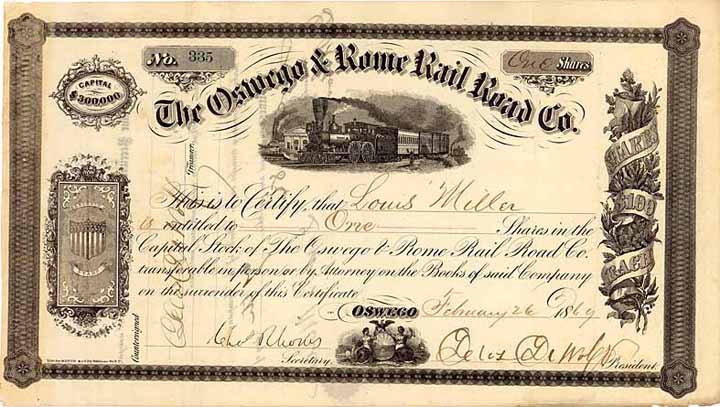 No. 335
One Shares
The Oswego & Rome Rail Road Co.
CAPITAL
$300,000
SHARES
$100
EACH
This is to Certify, that Louis Miller
is entitled to One Shares in the
Capital Stock of The Oswego & Rome Rail Road Co.
transferable in person or by Attorney on the Books of said Company
on the surrender of this Certificate
OSWEGO February 26 1869
Countersigned
Treasurer.
Secretary.
Delos DeWolf President.